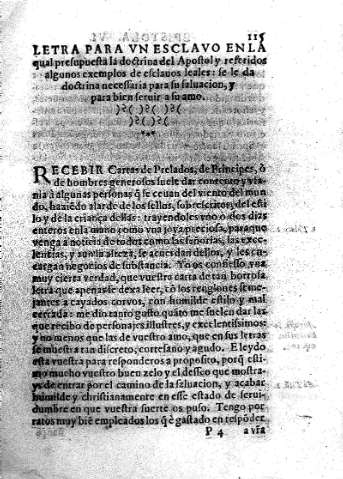 115
LETRA PARA VN ESCLAVO EN LA
qual presupuesta la doctrina del Apostol y referidos
algunos exemplos de esclauos leales: se le da
doctrina necessaria para su saluacion, y
para bien seruir a su amo.
RECEBIR Cartas de Prelados, de Principes, ò
de hombres generosos suele dar contento y
à algunas personas q̃ se ceuan del viento del mun
do, haziẽdo alarde de los sellos, sobrescritos, del esti
lo y de la criança dellas: trayendoles vno o dos dias
enteros en la mano como vna joya preciosa, para que
venga a noticia de todos como las señorias, las exce-
lentias, y aun la alteza, se acuerdan dellos, y les en
cargan negocios de substancia. Yo os confiesso vna
muy cierta verdad, que vuestra carta de tan
letra que apenas se dexa leer, cõ los renglones seme-
jantes a cayados corvos, con humilde estilo y mal
cerrada: me dio tanto gusto quãto me suelen dar las
que recibo de personajes illustres, y excelentissimos:
y no menos que las de vuestro amo, que en sus letras
se muestra tan discreto, cortesano y agudo. E leydo
esta vuestra para responderos a proposito, porq̃ esti-
mo mucho vuestro buen zelo y el desseo que mostra-
ys de entrar por el camino de la saluacion, y acabar
humilde y christianamente en esse estado de serui-
dumbre en que vuestra suerte os puso. Tengo por
ratos muy bien empleados los q̃ è gastado en respõder
P 4